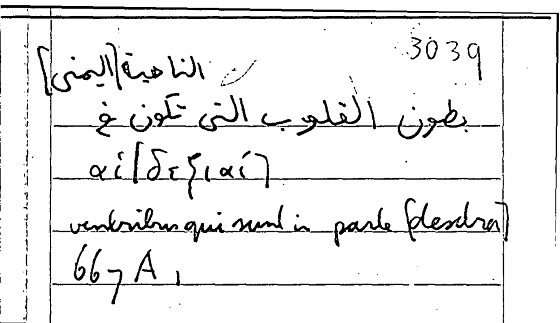 3039
الناحية [اليمنى]
بطون القلوب التى تكون فى
αἱ [δεξιαί]
ventribus qui sunt in parte [dextra]
667 A 1